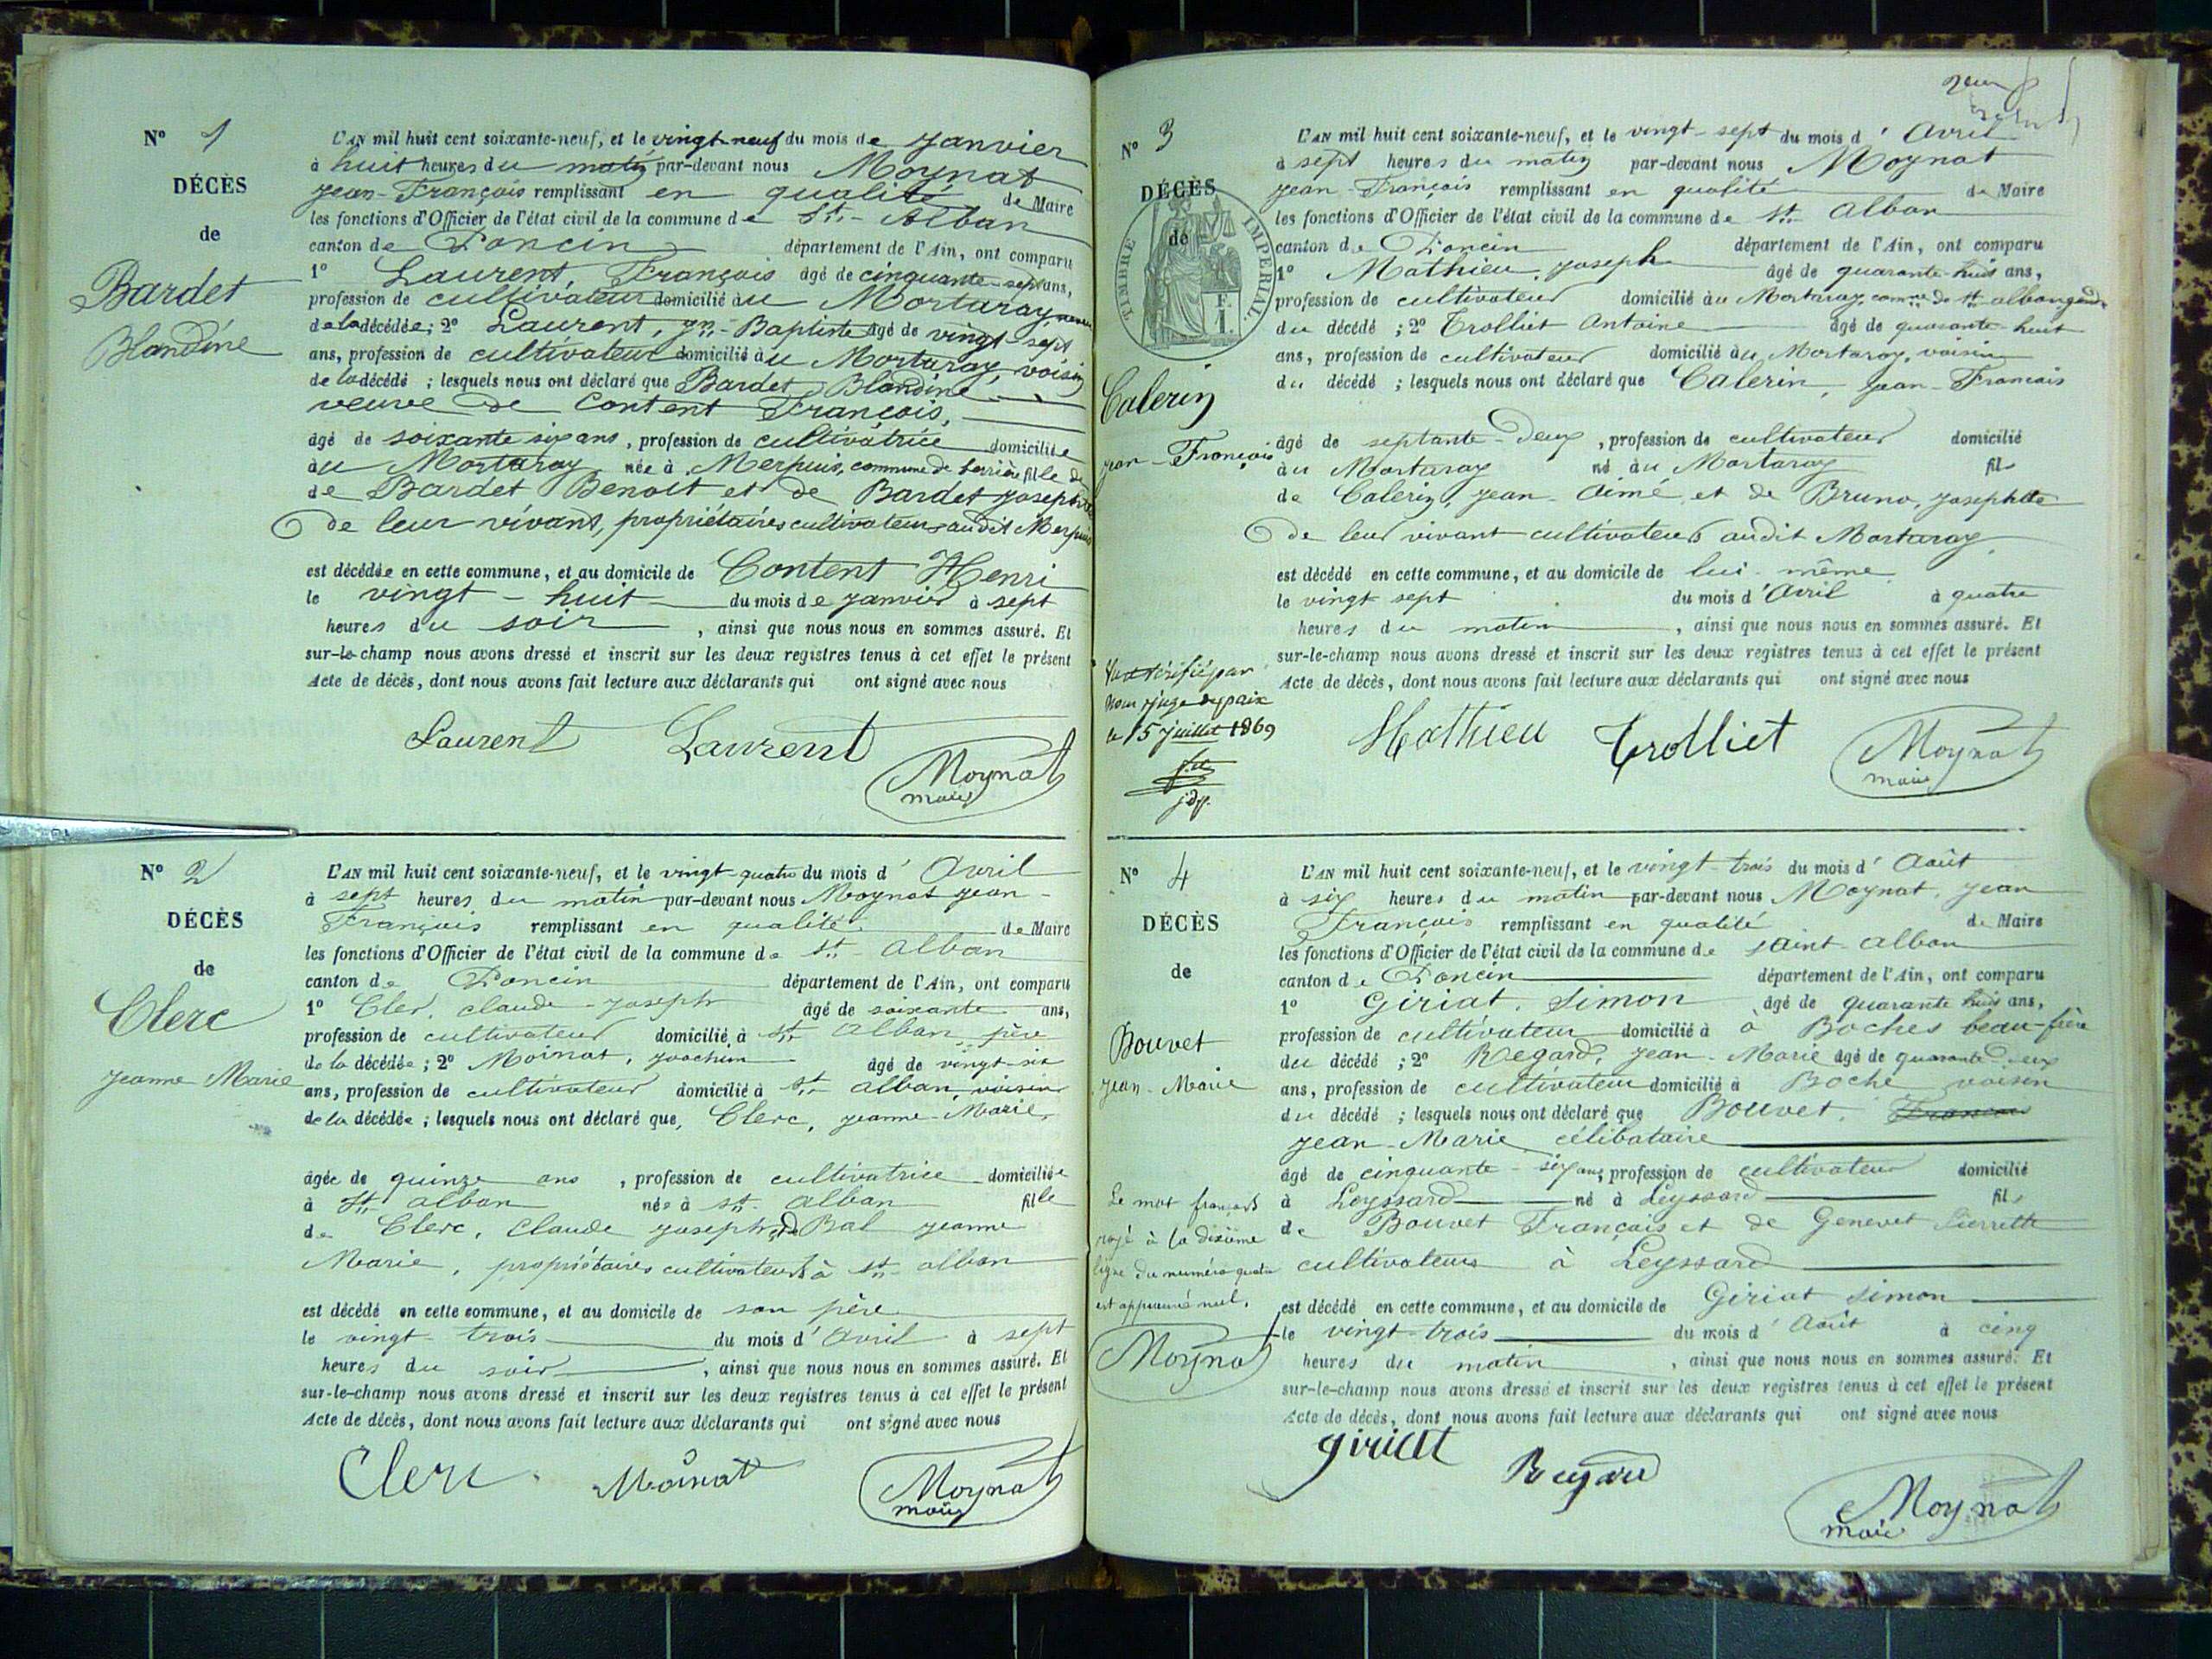 N° 1
DÉCÈS
de
Bardet
Blandine
L'AN mil huit cent soixante-neuf, et le vingt-neuf du mois de Janvier
à huit heures du matin par-devant nous Moynat
Jean-François remplissant en qualité de Maire
les fonctions d'Officier de l'état civil de la commune de St.-Alban
canton de Poncin département de l'Ain, ont comparu
1° Laurent, François âgé de cinquante-sept ans,
profession de cultivateur domicilié au Mortaray,
de la décédée; 2° Laurent, Jn.-Baptiste âgé de vingt-sept
ans, profession de cultivateur domicilié au Mortaray, voisin
de la décédé ; lesquels nous ont déclaré que Bardet, Blandine
veuve de Content François,
âgé de soixante six ans, profession de cultivatrice domiciliée
au Mortaray née à Merpuis, commune de Serrières fille de
de Bardet Benoit et de Bardet Josephte
de leur vivant, propriétaires cultivateurs audit Merpuis
est décédée en cette commune, et au domicile de Content Henri
le vingt-huit du mois de Janvier à sept
heures du soir, ainsi que nous nous en sommes assuré. Et
sur-le-champ nous avons dressé et inscrit sur les deux registres tenus à cet effet le présent
Acte de décès, dont nous avons fait lecture aux déclarants qui ont signé avec nous
Laurent Laurent Moynat
maire
N° 2
DÉCÈS
de
Clerc
Jeanne Marie
L'AN mil huit cent soixante-neuf, et le vingt-quatre du mois d'Avril
à sept heures du matin par-devant nous Moynat Jean-
François remplissant en qualité de Maire
les fonctions d'Officier de l'état civil de la commune de St.-Alban
canton de Poncin département de l'Ain, ont comparu
1° Clerc, Claude-Joseph âgé de soixante ans,
profession de cultivateur domicilié à St. Alban, père
de la décédée; 2° Moinat, Joachim âgé de vingt-six
ans, profession de cultivateur domicilié à St. Alban, voisin
de la décédée; lesquels nous ont déclaré que, Clerc, Jeanne-Marie,
âgée de quinze ans, profession de cultivatrice domiciliée
à St. Alban née à St. Alban fille
de Clerc, Claude Joseph, et de Bal Jeanne
Marie, propriétaires cultivateurs à St. Alban
est décédé en cette commune, et au domicile de son père
le vingt-trois du mois d'Avril à sept
heures du soir, ainsi que nous nous en sommes assuré. Et
sur-le-champ nous avons dressé et inscrit sur les deux registres tenus à cet effet le présent
Acte de décès, dont nous avons fait lecture aux déclarants qui ont signé avec nous
Clerc Moinat Moynat
maire
N° 3
DÉCÈS
de
TIMBRE IMPERIAL.
F.
1.
Calerin
Jean-François
L'AN mil huit cent soixante-neuf, et le vingt-sept du mois d'Avril
à sept heures du matin par-devant nous Moynat
Jean-François remplissant en qualité de Maire
les fonctions d'Officier de l'état civil de la commune de St. Alban
canton de Poncin département de l'Ain, ont comparu
1° Mathieu, Joseph âgé de quarante-huit ans,
profession de cultivateur domicilié au Mortaray, comne de St. alban gendre
du décédé ; 2° Trolliet Antoine âgé de quarante-huit
ans, profession de cultivateur domicilié au Mortaray, voisin
du décédé ; lesquels nous ont déclaré que Calerin, Jean-François
âgé de septante-deux, profession de cultivateur domicilié
au Mortaray né au Mortaray fils
de Calerin, Jean-Aimé et de Bruno, Josephte
de leur vivant cultivateurs audit Mortaray,
est décédé en cette commune, et au domicile de lui-même
le vingt sept du mois d'Avril à quatre
heures du matin, ainsi que nous nous en sommes assuré. Et
sur-le-champ nous avons dressé et inscrit sur les deux registres tenus à cet effet le présent
Acte de décès, dont nous avons fait lecture aux déclarants qui ont signé avec nous
Vu et vérifié par
nous juge de paix
le 15 juillet 1869
j.d.p.
Mathieu Trolliet Moynat
maire
N° 4
DÉCÈS
de
Bouvet
Jean-Marie
L'AN mil huit cent soixante-neuf, et le vingt-trois du mois d'Août
à six heures du matin par-devant nous Moynat, Jean
François remplissant en qualité de Maire
les fonctions d'Officier de l'état civil de la commune de saint-alban
canton de Poncin département de l'Ain, ont comparu
1° Giriat, Simon âgé de quarante huit ans,
profession de cultivateur domicilié à à Boches beau-frère
du décédé ; 2° Regard, Jean-Marie âgé de quarante deux
ans, profession de cultivateur domicilié à Boche voisin
du décédé ; lesquels nous ont déclaré que Bouvet, François
Jean-Marie célibataire
âgé de cinquante-six ans, profession de cultivateur domicilié
à Leyssard né à Leyssard fils
de Bouvet François et de Genevet Pierrette
cultivateurs à Leyssard
est décédé en cette commune, et au domicile de Giriat Simon
le vingt-trois du mois d'Août à cinq
heures du matin, ainsi que nous nous en sommes assuré. Et
sur-le-champ nous avons dressé et inscrit sur les deux registres tenus à cet effet le présent
Acte de décès, dont nous avons fait lecture aux déclarants qui ont signé avec nous
Le mot français
rayé à la dixième
ligne du numéro quatre
est approuvé nul.
Moynat
Giriat Regard Moynat
maire